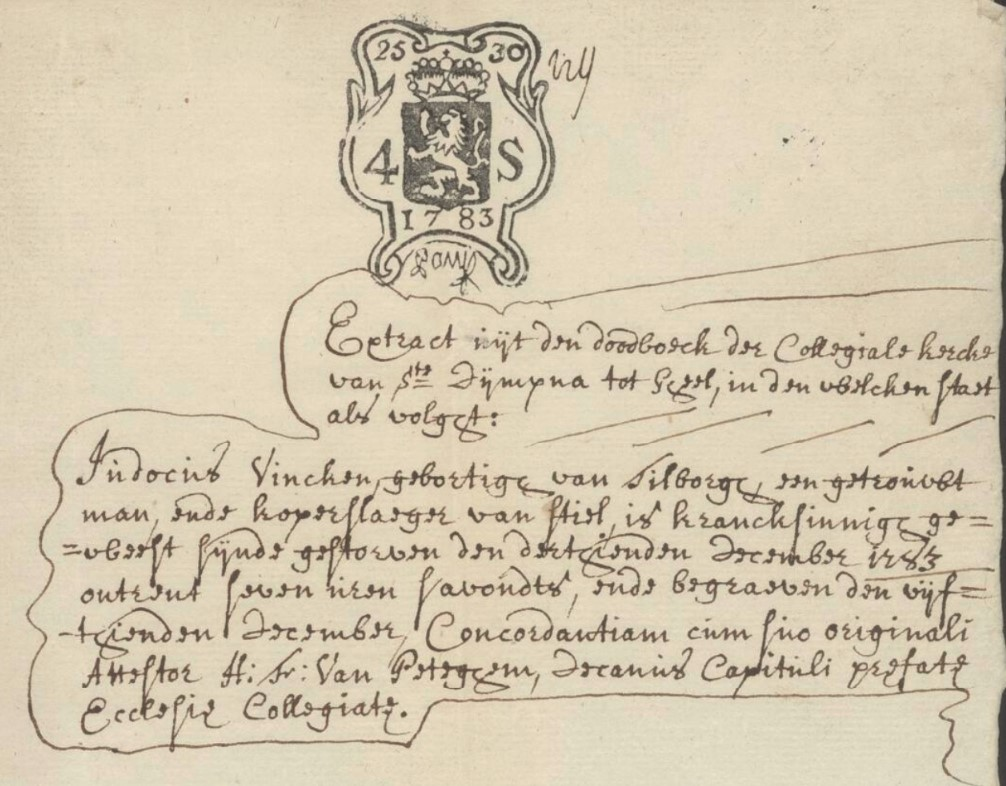 25 30
4 S
1783
Extract uijt den doodboeck der Collegiale kercke
van Ste Dijmpna tot Gheel, in den welcken staet
als volght:
Judocus Vincken, gebortigh van Tilborgh, een getrouwt
man, ende koperslaeger van stiel, is krancksinnigh ge=
=weest sijnde gestorven den derthienden December 1783
outrent seven uren savondts, ende begraeven den vijf=
thienden December, Concordantiam cum suo originali
Attestor H: Fr: Van Peteghem, Decanus Capituli præfatę
Ecclesię Collegiatę.